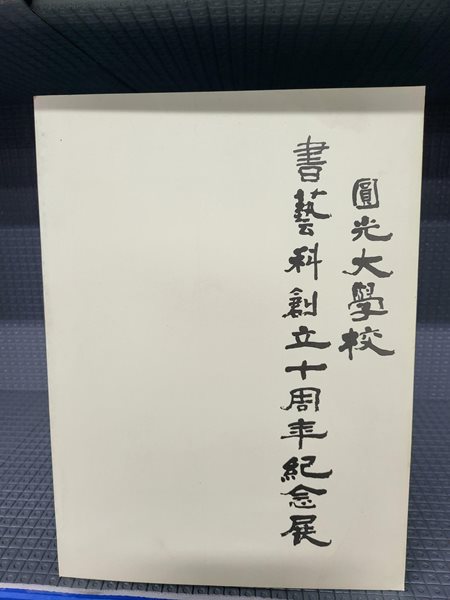 圓光大學校
書藝科創立十周年紀念展